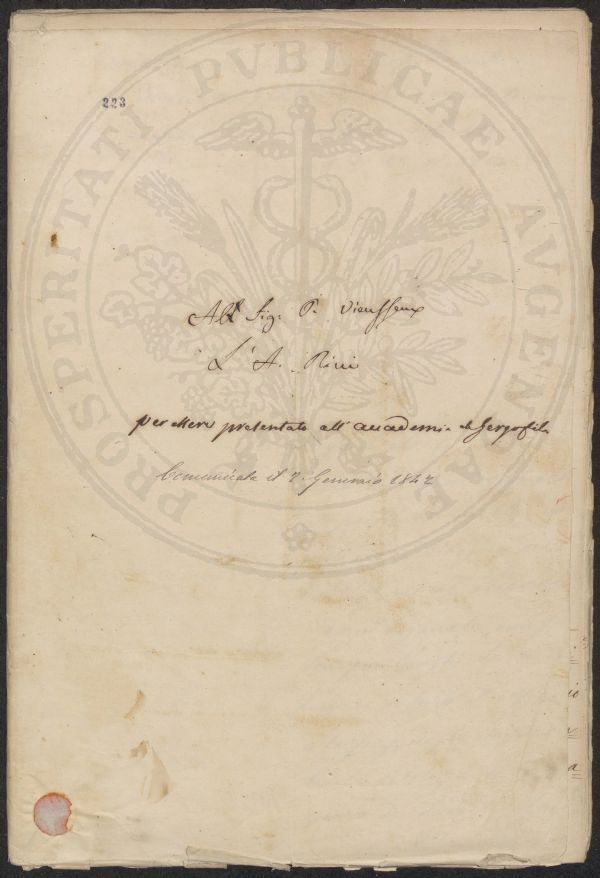 223
PROSPERITATI PVBLICAE AVGENDAE
All Sig: P. Vieusseux
L'A. Rini
per essere presentato all'accademia de Gergofili
Comunicata il 2. Gennaio 1842